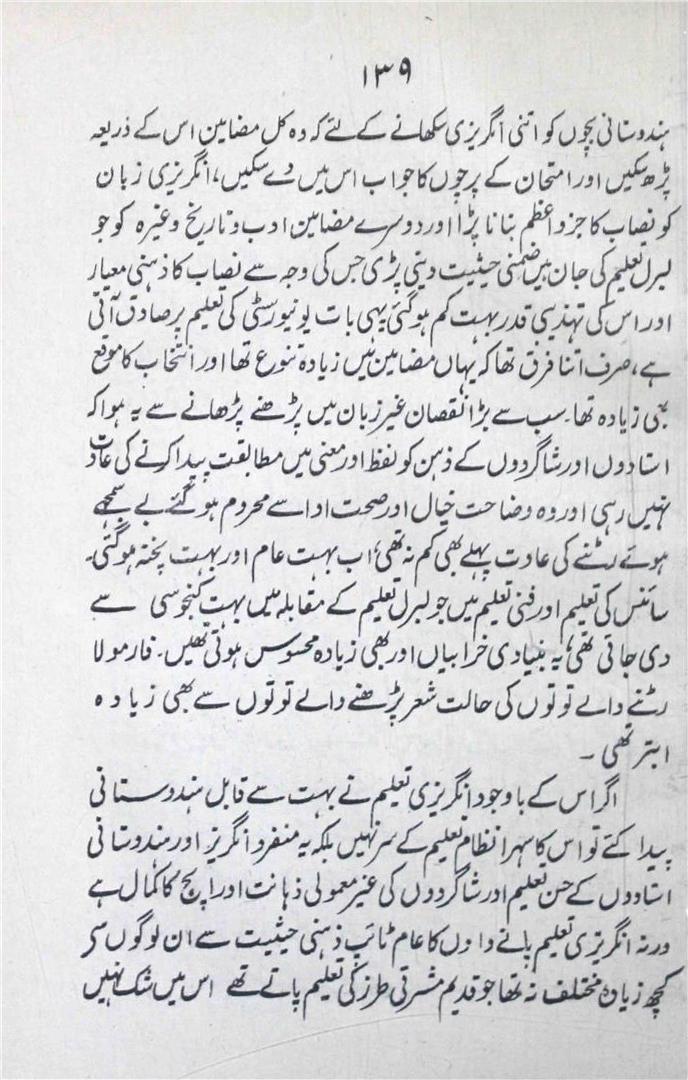 ۱۳۹
ہندوستانی بچوں کو اتنی انگریزی سکھانے کے لئے کہ وہ کل مضامین اس کے ذریعہ
پڑھ سکیں اور امتحان کے پرچوں کا جواب اس میں دے سکیں، انگریزی زبان
کو نصاب کا جزو اعظم بنانا پڑا اور دوسرے مضامین ادب و تاریخ وغیرہ کو جو
لبرل تعلیم کی جان ہیں ضمنی حیثیت دینی پڑی جس کی وجہ سے نصاب کا ذہنی معیار
اور اس کی تہذیبی قدر بہت کم ہو گئی یہی بات یونیورسٹی کی تعلیم پر صادق آتی
ہے، صرف اتنا فرق تھا کہ یہاں مضامین میں زیادہ تنوع تھا اور انتخاب کا موقع
بھی زیادہ تھا۔ سب سے بڑا نقصان غیر زبان میں پڑھنے پڑھانے سے یہ ہوا کہ
استادوں اور شاگردوں کے ذہن کو لفظ اور معنی میں مطابقت پیدا کرنے کی عادت
نہیں رہی اور وہ وضاحت خیال اور صحت ادا سے محروم ہو گئے بے سمجھے
ہوئے رٹنے کی عادت پہلے بھی کم نہ تھی، اب بہت عام اور بہت پختہ ہو گئی۔
سائنس کی تعلیم اور فنی تعلیم میں جو لبرل تعلیم کے مقابلہ میں بہت کنجوسی سے
دی جاتی تھی، یہ بنیادی خرابیاں اور بھی زیادہ محسوس ہوتی تھیں۔ فارمولا
رٹنے والے توتوں کی حالت شعر پڑھنے والے توتوں سے بھی زیادہ
ابتر تھی ۔
اگر اس کے باوجود انگریزی تعلیم نے بہت سے قابل ہندوستانی
پیدا کئے تو اس کا سہرا نظام تعلیم کے سر نہیں بلکہ یہ منفرد انگریز اور ہندوستانی
استادوں کے حسن تعلیم اور شاگردوں کی غیر معمولی ذہانت اور اپج کا کمال ہے
ورنہ انگریزی تعلیم پانے والوں کا عام ٹائپ ذہنی حیثیت سے ان لوگوں سے
کچھ زیادہ مختلف نہ تھا جو قدیم مشرقی طرز کی تعلیم پاتے تھے اس میں شک نہیں